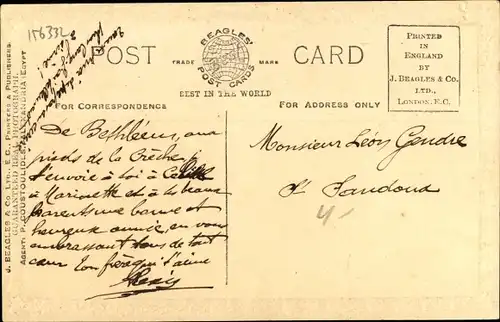 156332
POST
CARD
BEAGLES'
POST CARDS
TRADE MARK
BEST IN THE WORLD
PRINTED
IN
ENGLAND
BY
J. BEAGLES & CO.
LTD.,
LONDON. E.C.
FOR CORRESPONDENCE
FOR ADDRESS ONLY
J. BEAGLES & CO., LTD., E.C., PRINTERS & PUBLISHERS.
GUARANTEED REAL PHOTOGRAPH.
AGENT: P. COUSTOULIDES, ALEXANDRIA (EGYPT
De Bethléem, aux
pieds de la Crèche, je
t'envoie à toi à
à Marinette et à la beaux
parents une bonne et
heureuse année, en vous
embrassant tous de tout
cœur Ton frère qui t'aime
Alexis
Monsieur Léon Gendre
St Pandoux
4-